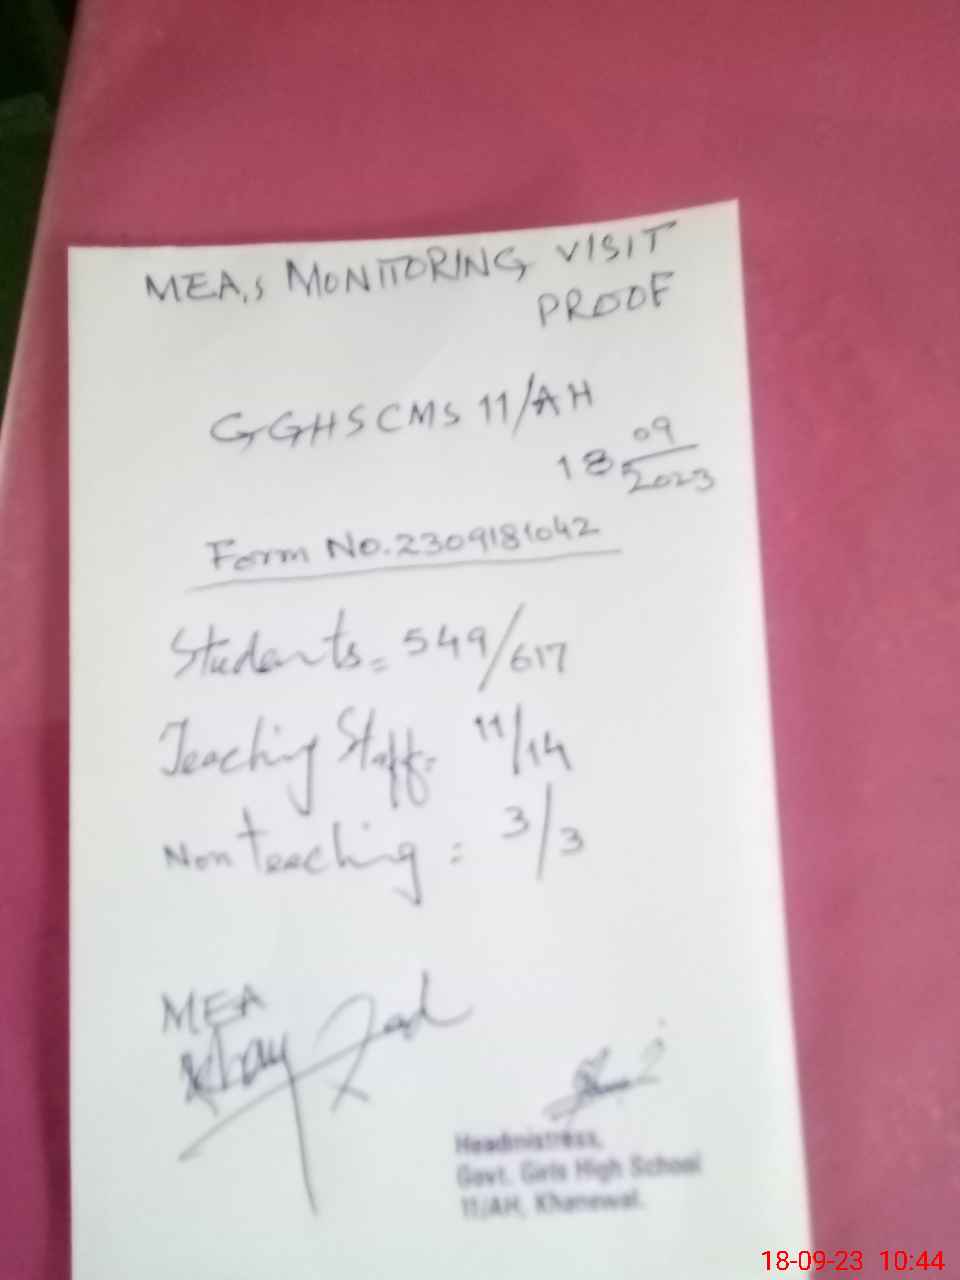 MEA,s MONITORING VISIT
PROOF
GGHSCMS 11/AH
18 09/2023
Form No. 2309181042
Students = 549/617
Teaching Staff = 11/14
Non teaching = 3/3
MEA
Headmistress,
Govt. Girls High School
11/AH, Khanewal.
18-09-23 10:44